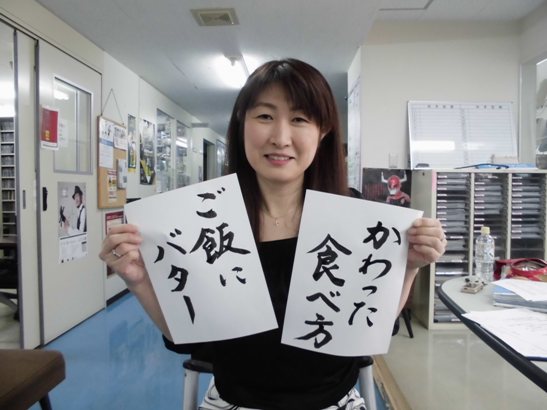 かわった
食べ方
ご飯に
バター